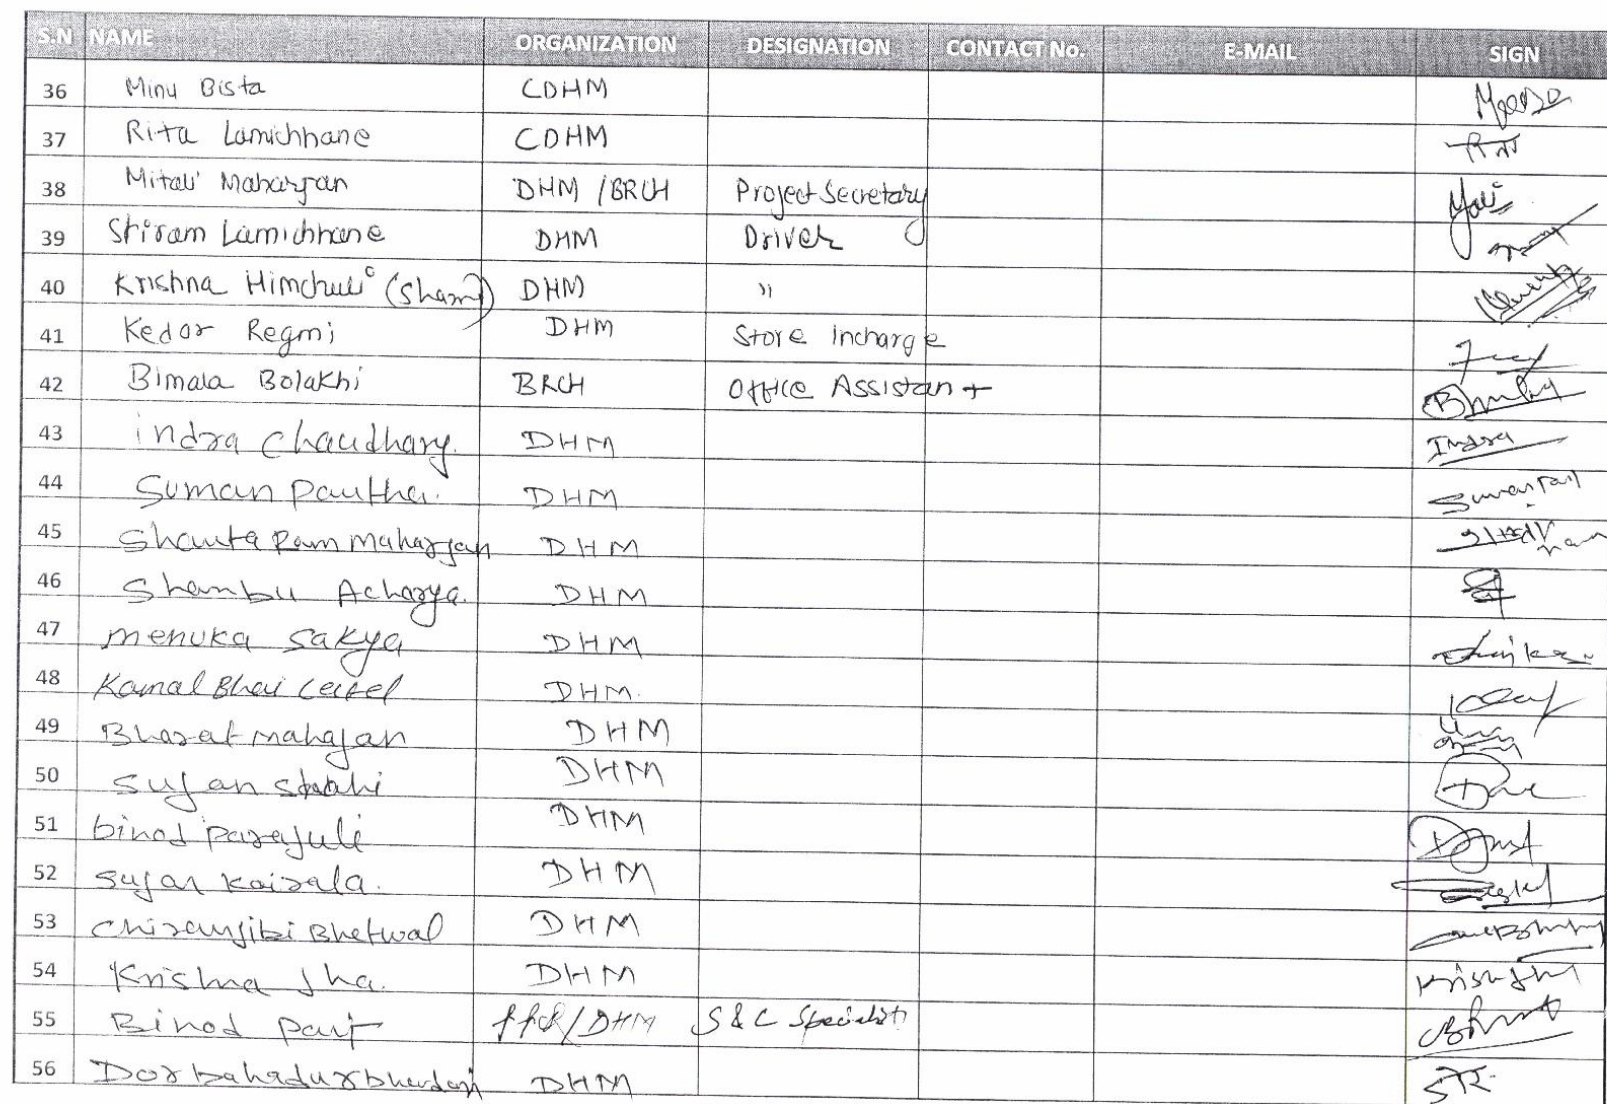 S.N NAME ORGANIZATION DESIGNATION CONTACT No. E-MAIL SIGN
36 Minu Bista CDHM
37 Rita Lamichhane CDHM रिता
38 Mitali Maharjan DHM /BRCH Project Secretary
39 Shiram Lamichhane DHM Driver
40 Krishna Himchuli (Shami) DHM "
41 Kedar Regmi DHM Store Incharge
42 Bimala Bolakhi BRCH Office Assistant
43 indra Chaudhary. DHM Indra
44 Suman Pautha. DHM
45 Shanta Ram Maharjan DHM
46 Shambu Acharya. DHM
47 menuka Sakya DHM
48 Kamal Bhai DHM.
49 Bharat mahajan DHM
50 Sujan Shahi DHM
51 binod parajuli DHM
52 Sujan Koirala. DHM
53 Chiranjibi Bhetwal DHM
54 Krishna Jha. DHM
55 Binod /DHM S&C Specialist
56 Dorbahadur Bhandari DHM डोर